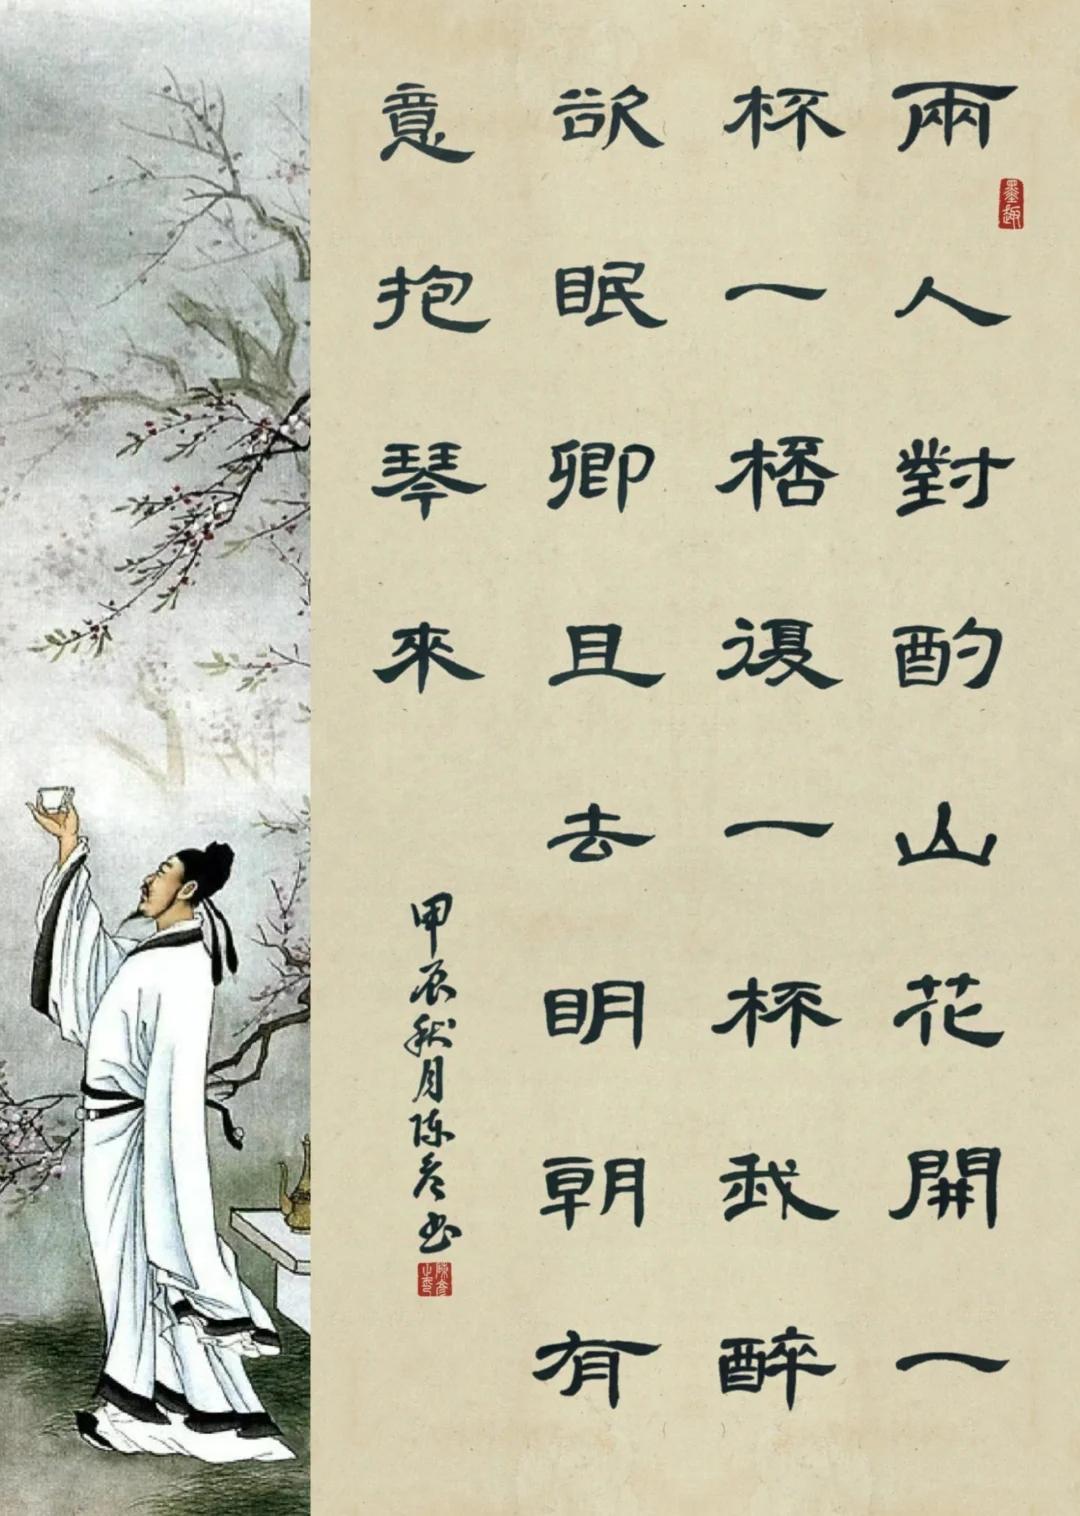 兩人對酌山花開一
杯一桮復一杯我醉
欲眠卿且去明朝有
意抱琴來
甲辰秋月陈彦书
墨趣
陈彦之印